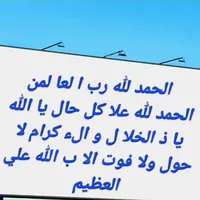 الحمد لله رب ا لعا لمن
الحمد لله علا كل حال يا الله
يا ذ الخلا ل و الء كرام لا
حول ولا فوت الا ب الله علي
العظيم